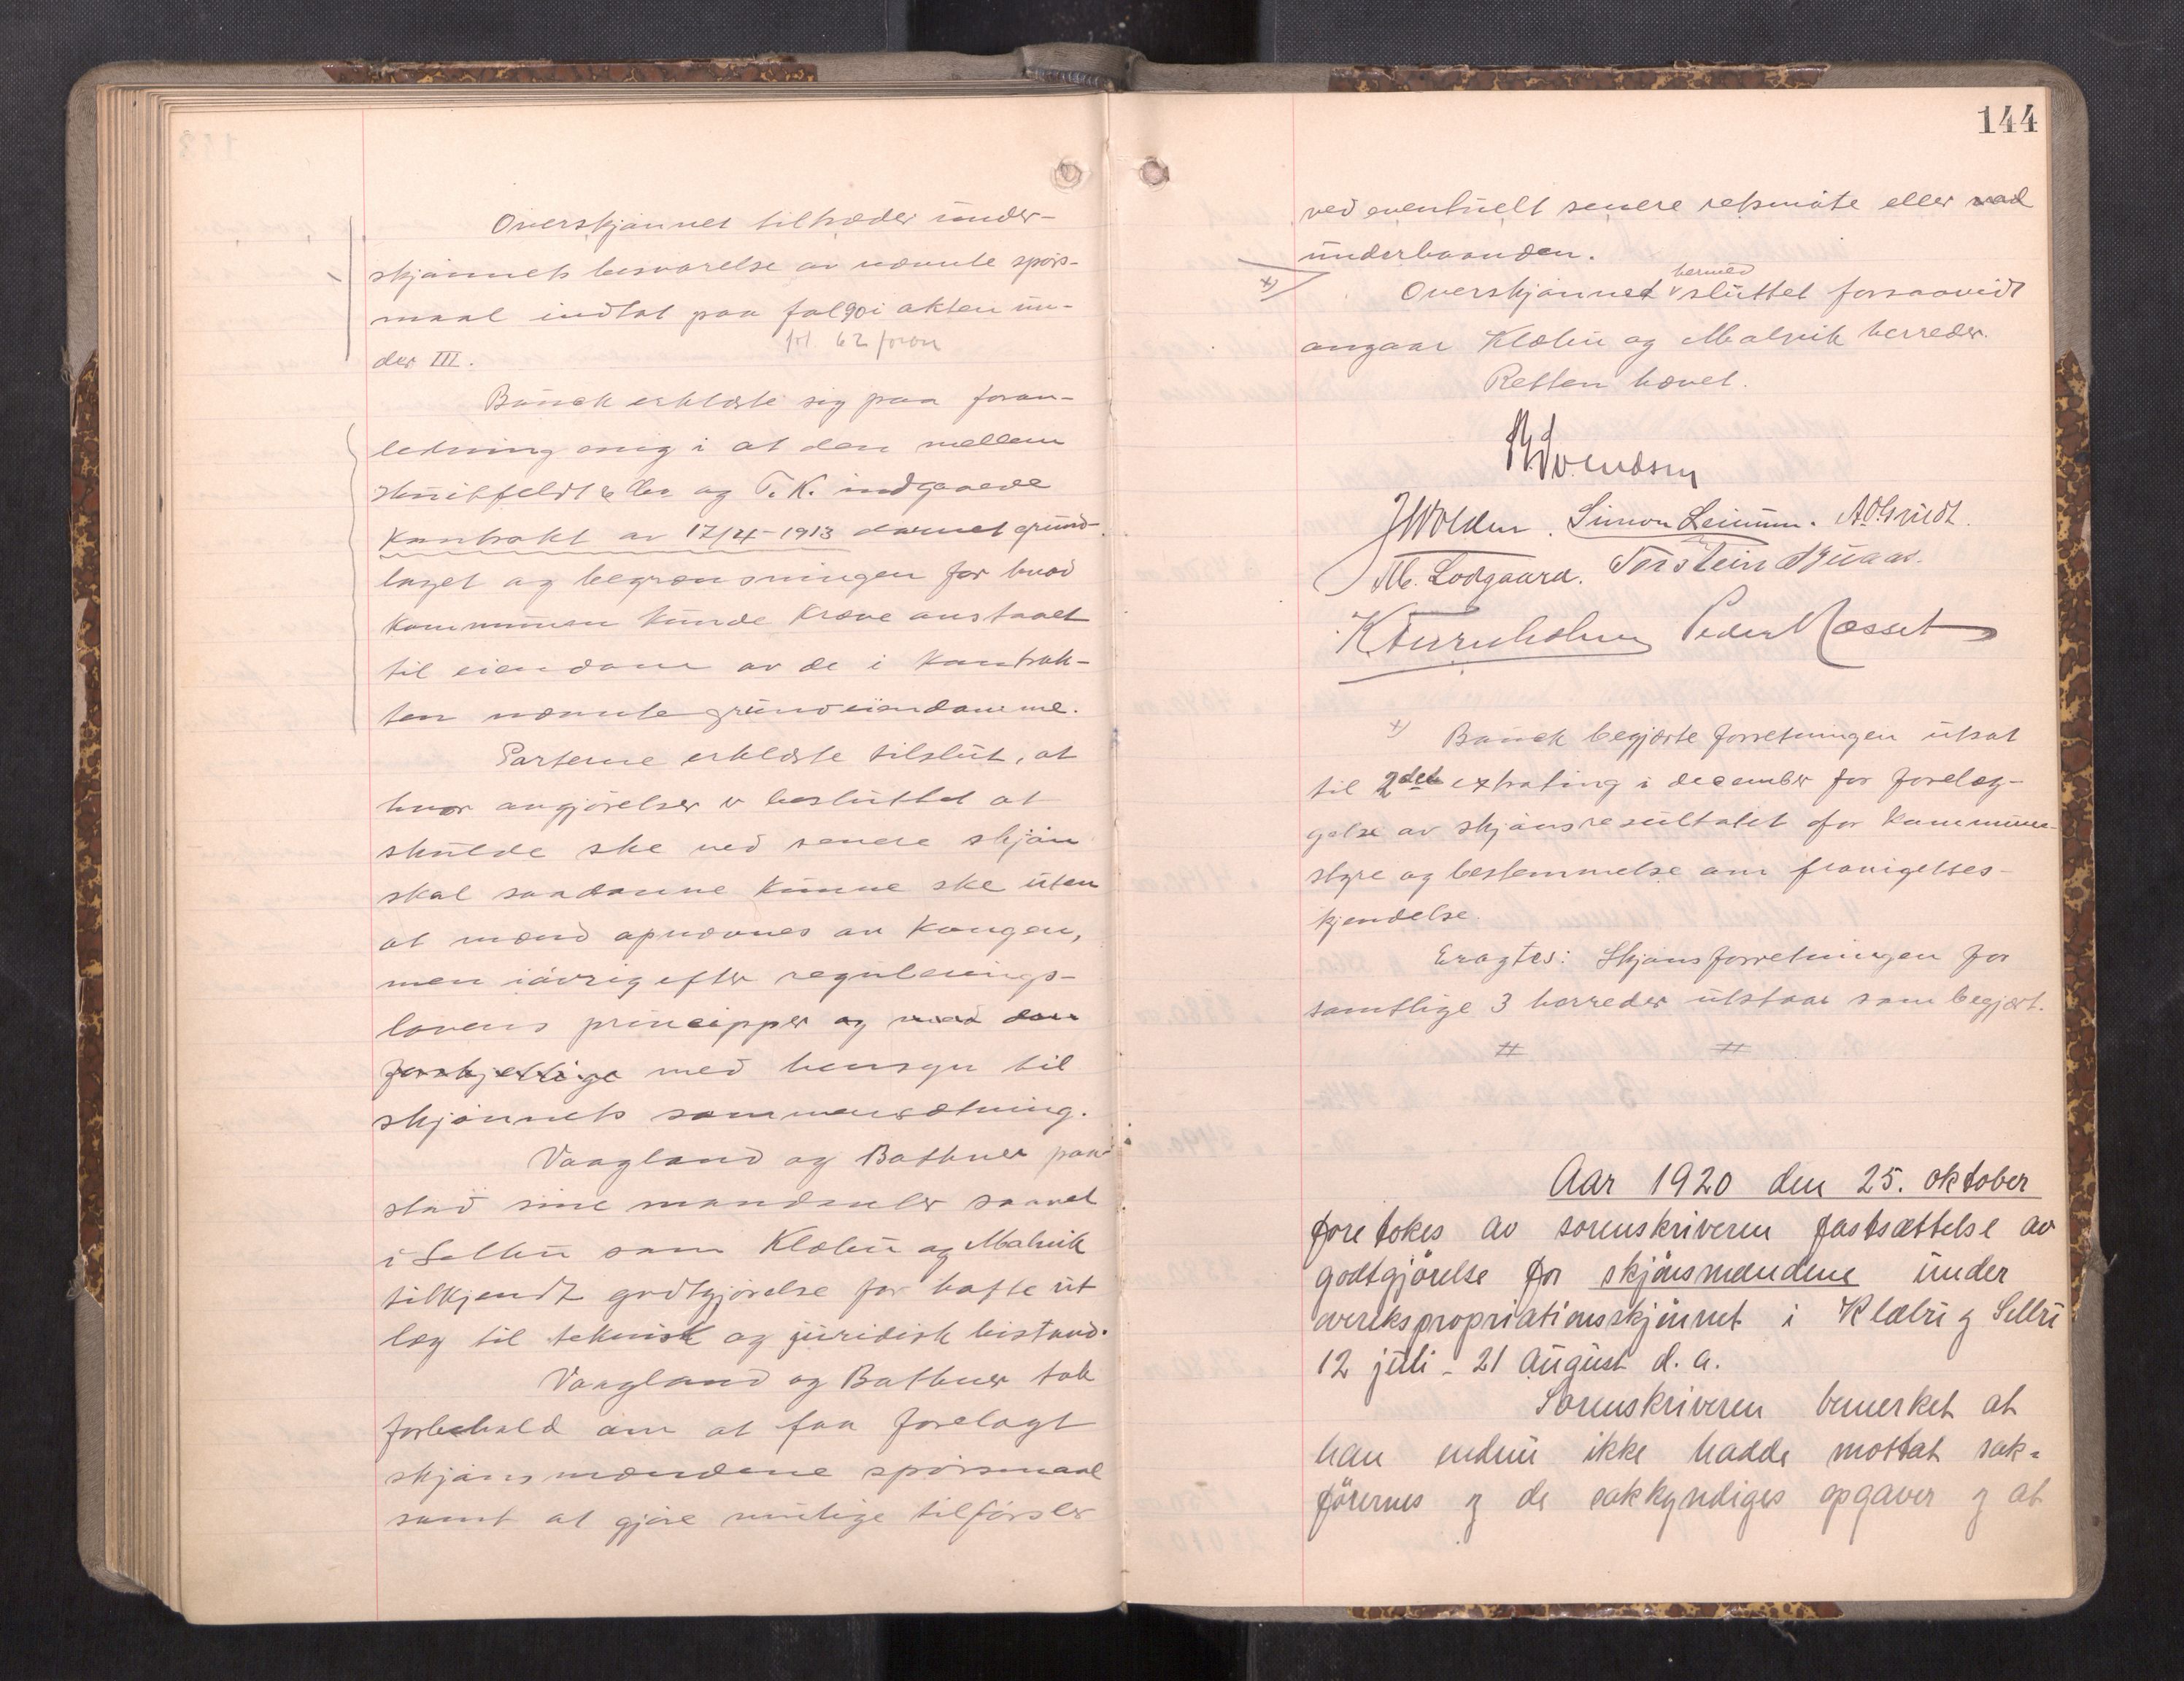 Overskjønnet tiltræder under-
skjønnets besvarelse av nævnte spørs-
maal indtat paa fol 90 i akten un-
fol 62 foran
der III.
Bauck erklærte sig paa foran-
ledning enig i at den mellem
Huitfeldt & Co og T. K. indgaaede
kontrakt av 17/4-1913 dannet grund-
laget og begrænsningen for hvad
kommunen kunde kræve avstaaet
til eiendom av de i kontrak-
ten nævnte grundeiendomme.
Parterne erklærte tilslut, at
hvor avgjørelser er besluttet at
skulde ske ved senere skjøn
skal saadanne kunne ske uten
at mænd opnævnes av Kongen,
men iøvrig efter regulerings-
lovens principper og med den
forskjellige med hensyn til
skjønnets sammensætning.
Vaagland og Bathner paa-
stod sine mandanter saavel
i Selbu som Klæbu og Malvik
tilkjendt godtgjørelse for hafte ut
læg til teknisk og juridisk bistand.
Vaagland og Bathner tok
forbehold om at faa forelagt
skjønsmændene spørsmaal
samt at gjøre mulige tilførsler
144
ved eventuelt senere retsmøte eller ved
underhaanden.
hermed
x) Overskjønnet sluttet forsaavidt
angaar Klæbu og Malvik herreder.
Retten hævet.
Svendsen
J Wolden. Simon Leinum. A. O. Grudt.
M. Lodgaard. Torstein Bjuaas.
K Furunholm Peder Næsset
x) Bauck begjærte forretningen utsat
til 2det extrating i december for forelæg-
gelse av skjønsresultatet for kommune-
styre og bestemmelse om fravigelses-
kjendelse.
Eragtes: Skjønsforretningen for
samtlige 3 herreder utstaar som begjært.
Aar 1920 den 25. oktober
foretokes av sorenskriveren fastsættelse av
godtgjørelse for skjønsmændene under
overekspropriationsskjønnet i Klæbu og Selbu
12 juli - 21 august d. a.
Sorenskriveren bemerket at
han endnu ikke hadde mottat sak=
førernes og de sakkyndiges opgaver og at